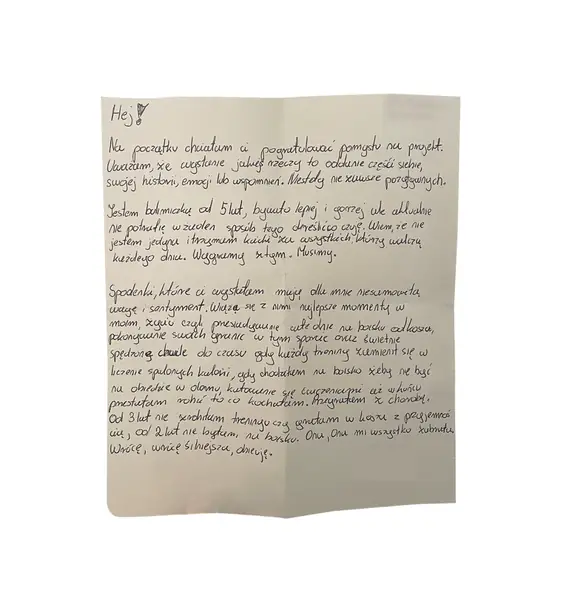 Hej!
Na początku chciałam ci pogratulować pomysłu na projekt.
Uważam, że wysłanie jakiejś rzeczy to oddanie części siebie,
swojej historii, emocji lub wspomnień. Niestety nie zawsze pozytywnych.
Jestem bulimiczką od 5 lat, bywało lepiej i gorzej ale aktualnie
nie potrafię w żaden sposób tego określić co czuję. Wiem, że nie
jestem jedyna i trzymam kciuki za wszystkich, którzy walczą
każdego dnia. Wygramy z tym. Musimy.
Spodenki, które ci wysłałam mają dla mnie niesamowitą
wagę i sentyment. Wiążą się z nimi najlepsze momenty w
moim życiu czyli przesiadywanie całe dnie na boisku od kosza,
pokonywanie swoich granic w tym sporcie oraz świetnie
spędzone chwile do czasu gdy każdy trening zamienił się w
liczenie spalonych kalorii, gdy chodziłam na boisko żeby nie być
na obiedzie w domu, katowanie się ćwiczeniami aż w końcu
przestałam robić to co kochałam. Przegrałam z chorobą.
Od 3 lat nie zrobiłam treningu czy grałam w kosza z przyjemnoś
cią, od 2 lat nie byłam na boisku. Ona, Ona mi wszystko zabrała.
Wrócę, wrócę silniejsza, obiecuję.